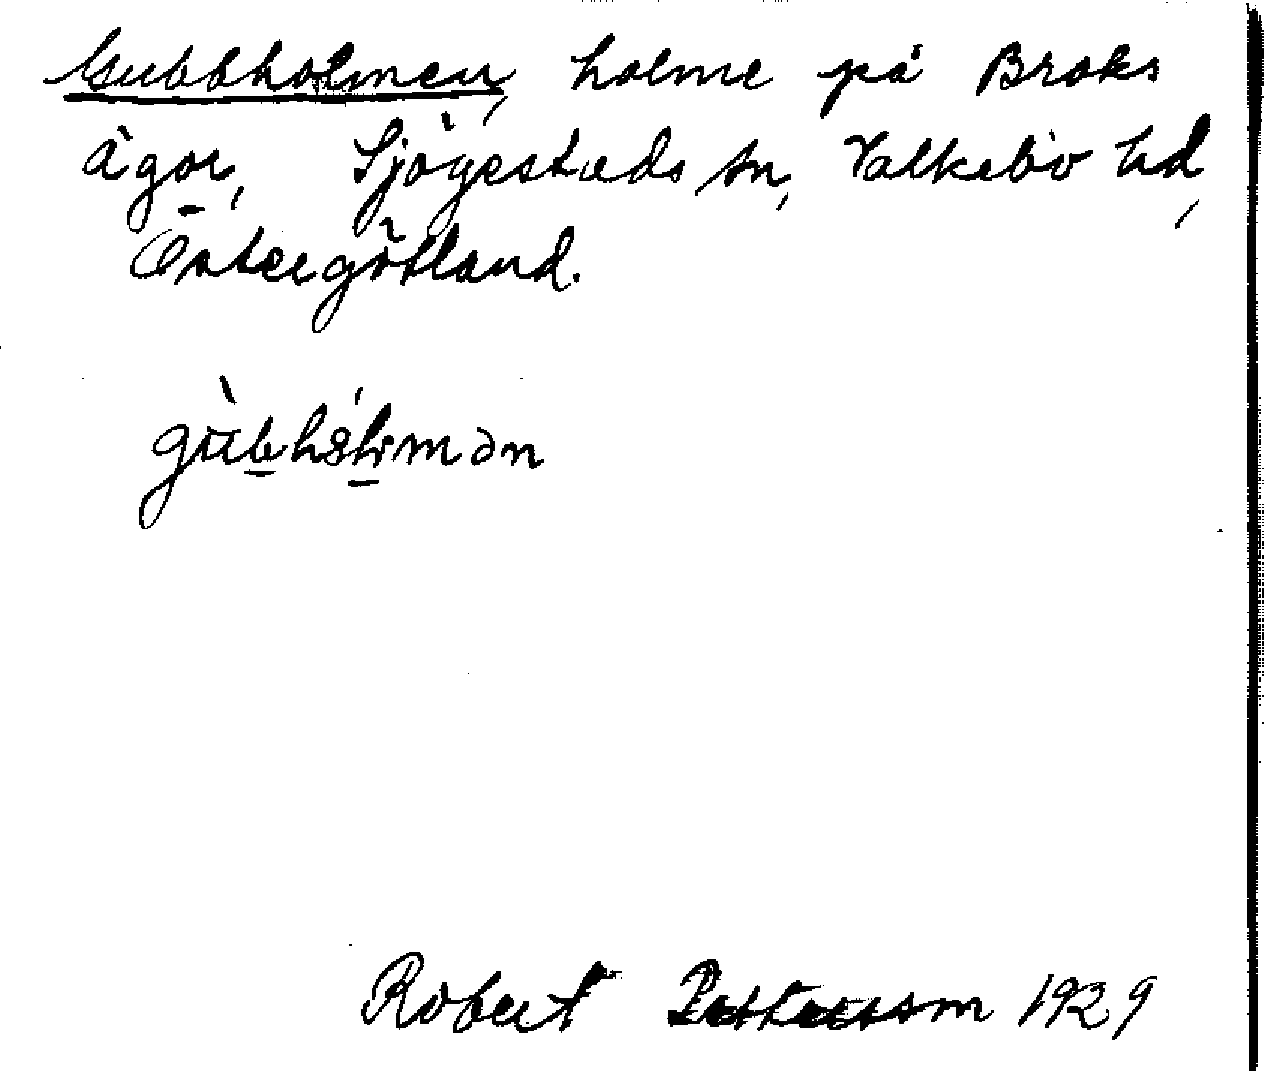 Gubbholmen, holme på Broks
ägor, Sjögestads sn, Valkebo hd,
Östergötland.
Robert Pettersson 1929